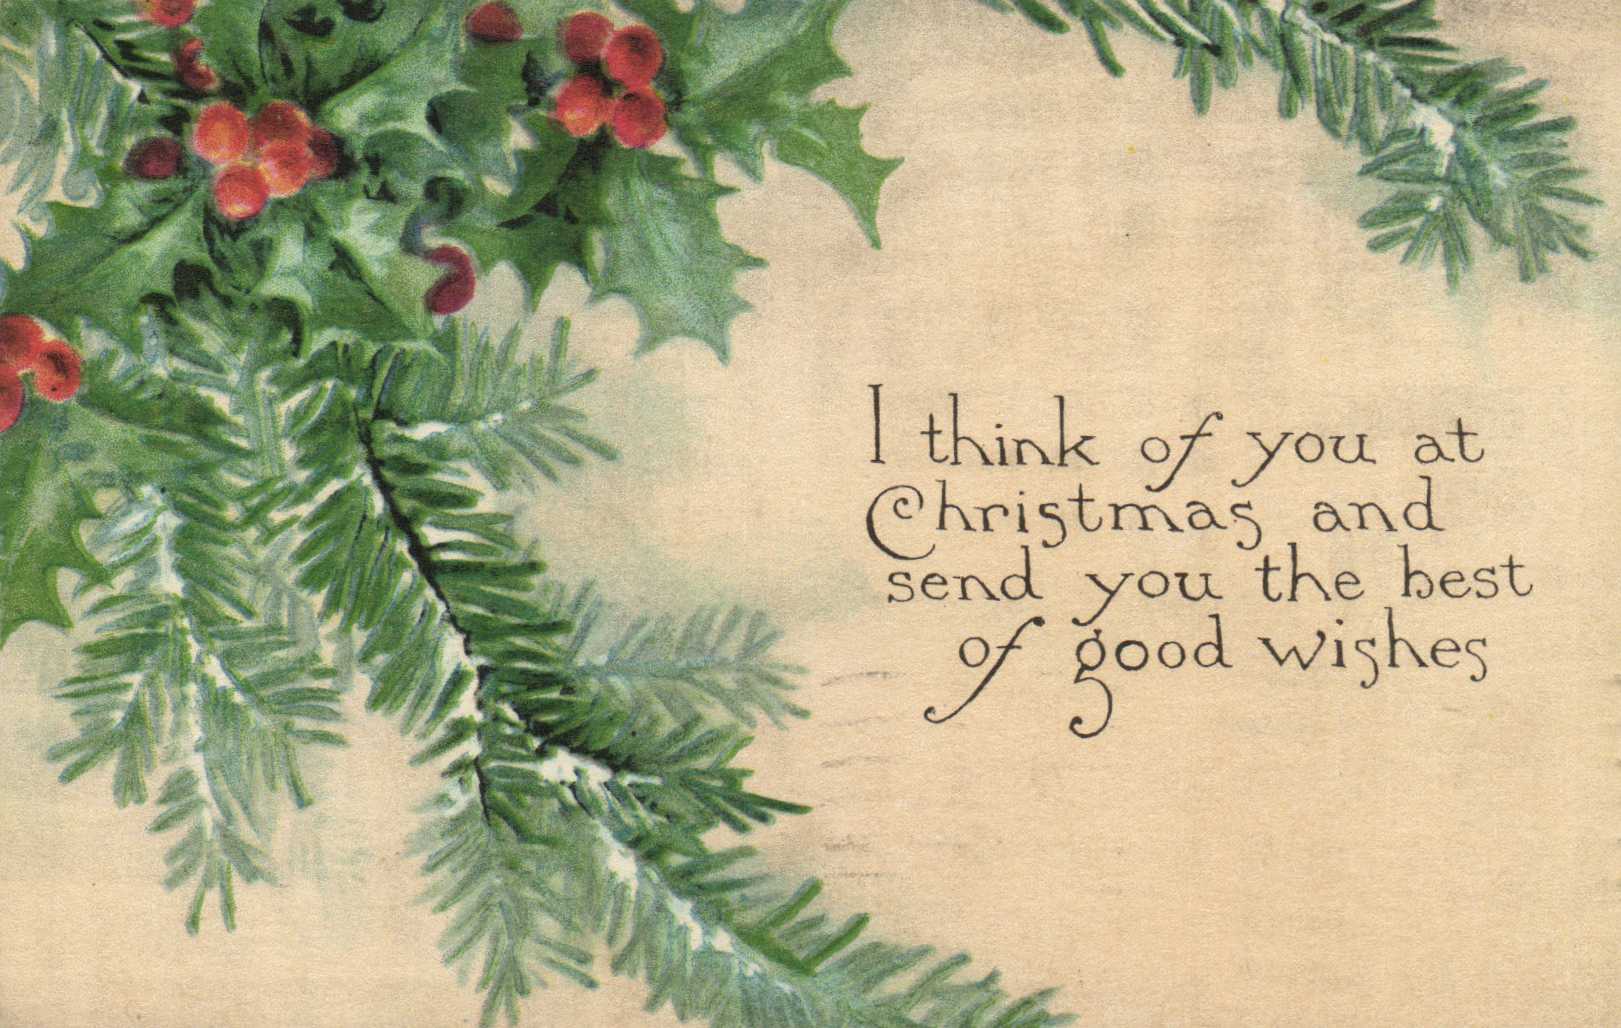 I think of you at
Christmas and
send you the best
of good wishes